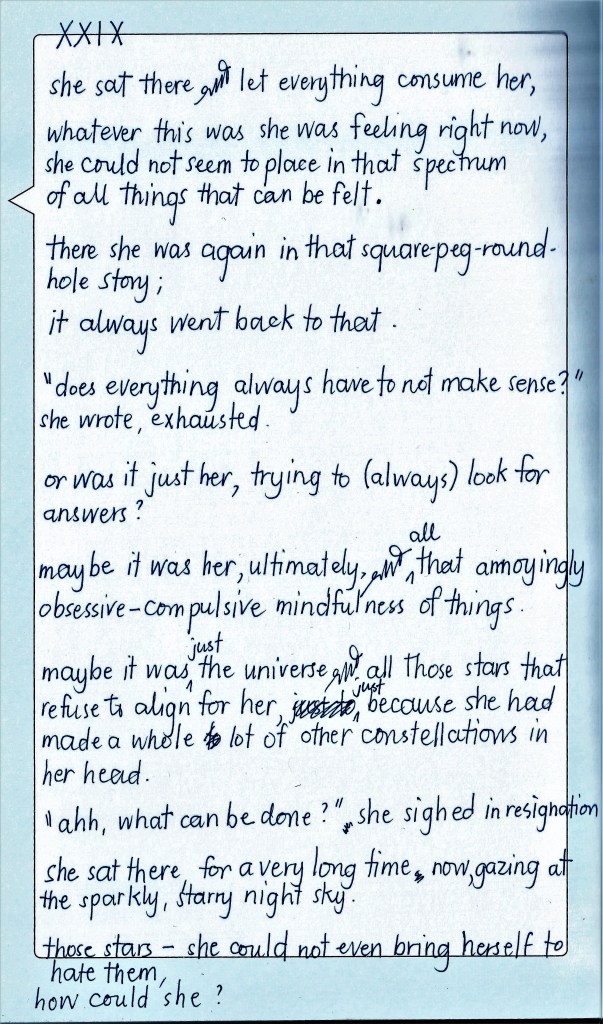 XXIX
she sat there and let everything consume her,
whatever this was she was feeling right now,
she could not seem to place in that spectrum
of all things that can be felt.
there she was again in that square-peg-round-
hole story;
it always went back to that.
"does everything always have to not make sense?"
she wrote, exhausted.
or was it just her, trying to (always) look for
answers?
maybe it was her, ultimately, and all that annoyingly
obsessive-compulsive mindfulness of things.
maybe it was just the universe and all those stars that
refuse to align for her, just because she had
made a whole lot of other constellations in
her head.
"ahh, what can be done?", she sighed in resignation
she sat there, for a very long time, now, gazing at
the sparkly, starry night sky.
those stars – she could not even bring herself to
hate them,
how could she?